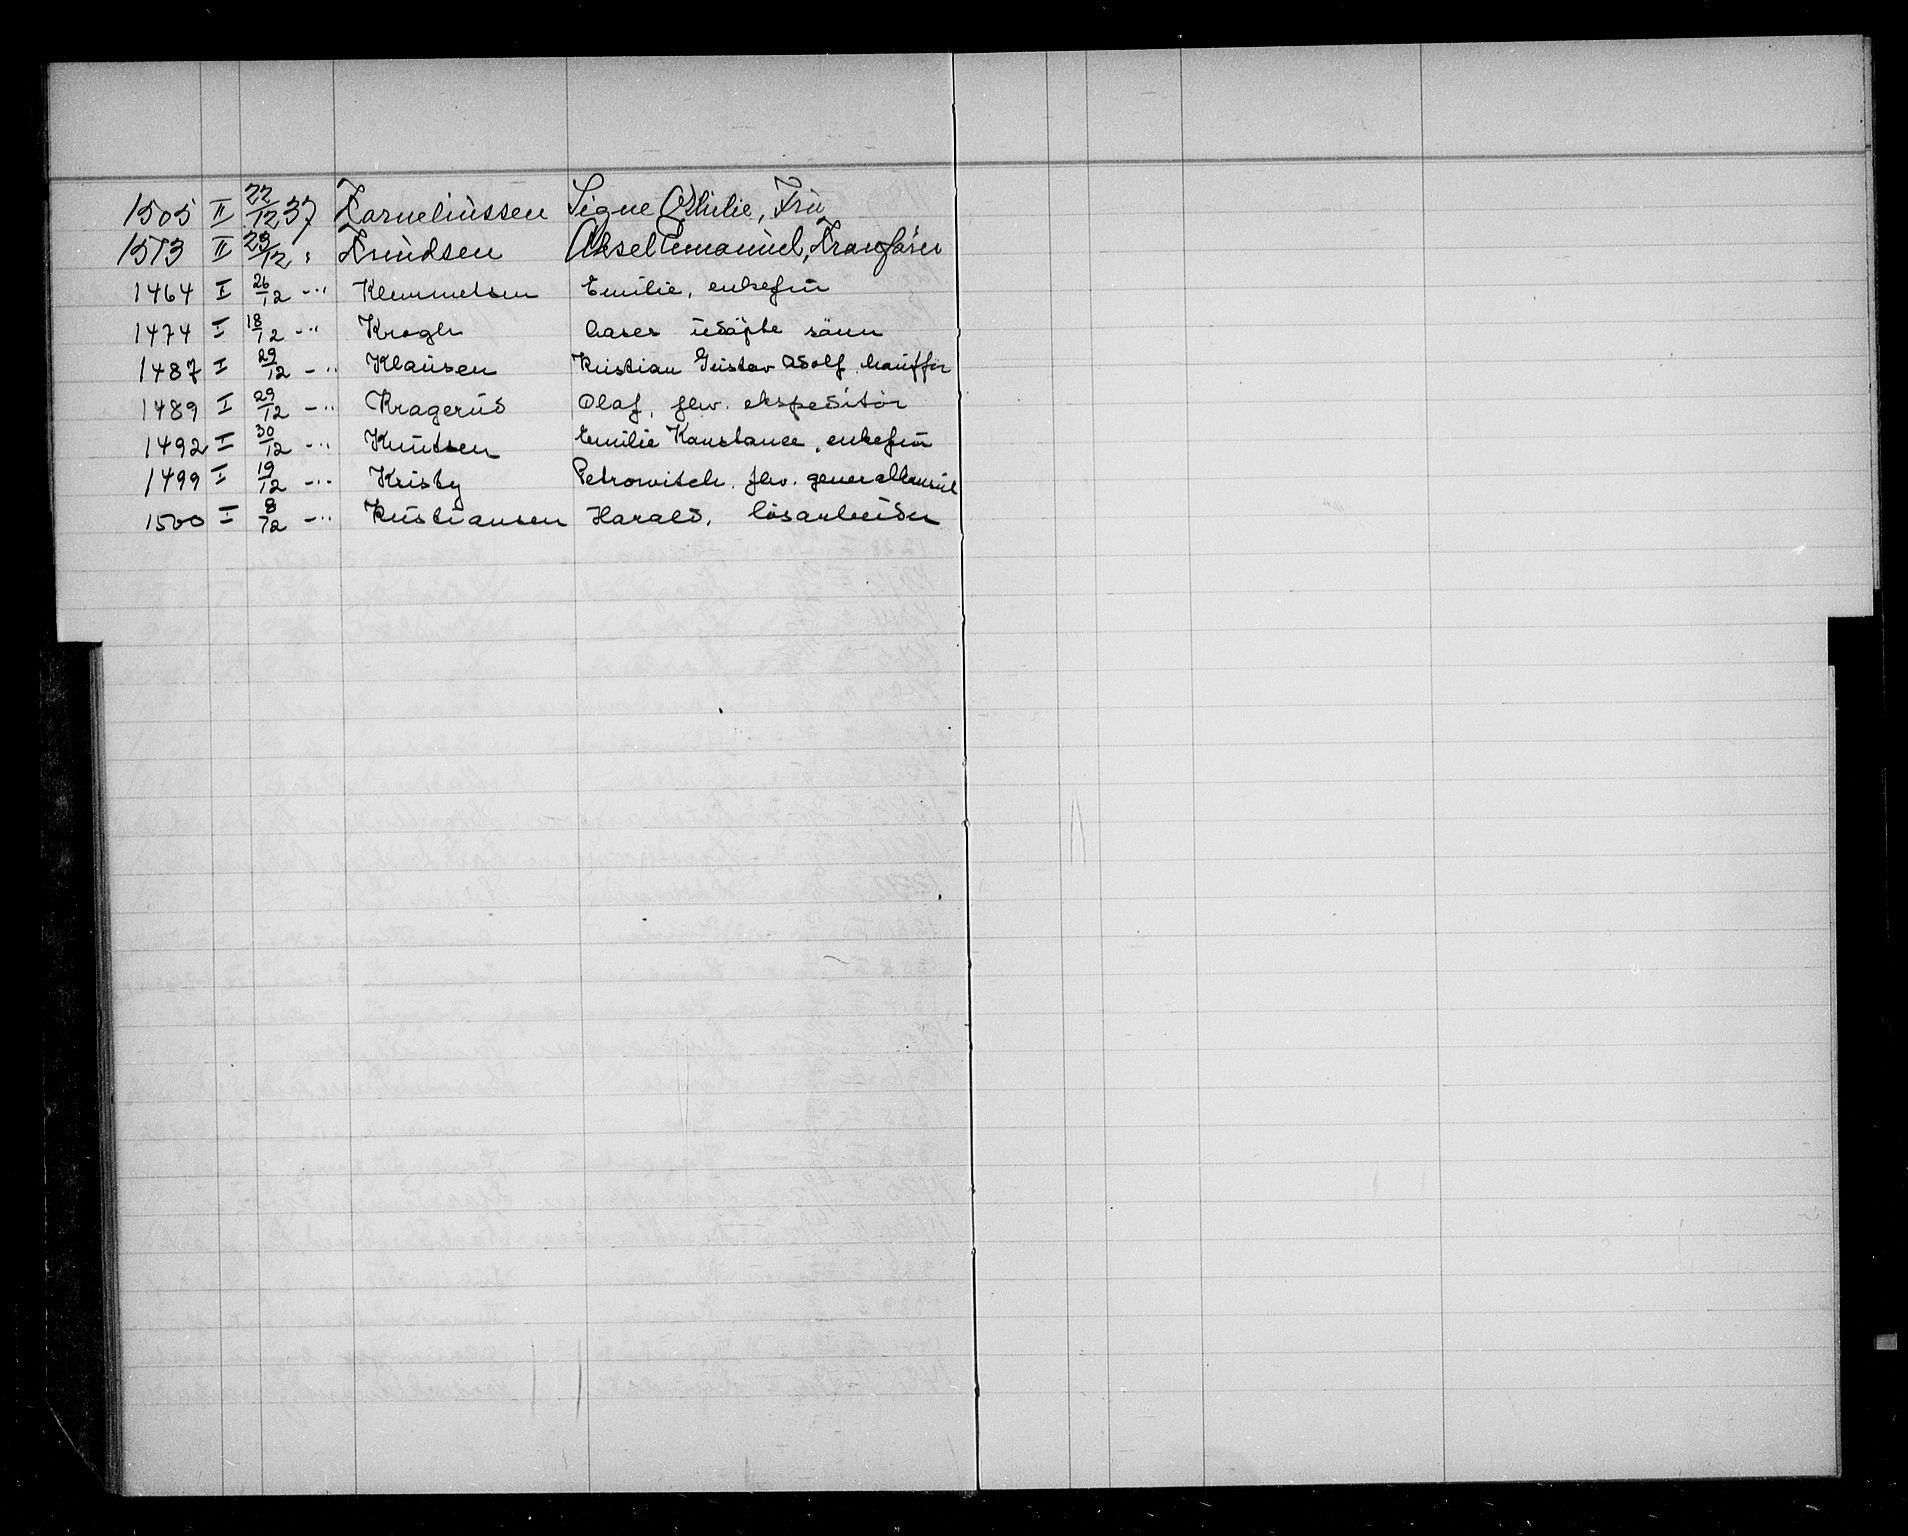 1505 II 22/12 37 Korneliussen Signe Othilie, Fru
1513 II 23/12 " Knudsen Aksel Emanuel, Kranfører
1464 I 26/12 -"- Klemmetsen Emilie, enkefru
1474 I 18/12 -"- Krogh Aases udøpte sønn
1487 I 29/12 -"- Klausen Kristian Gustav Adolf, chauffør
1489 I 29/12 -"- Kragerud Olaf, fhv. ekspeditør
1492 I 30/12 -"- Knutsen Emilie Konstance, enkefru
1499 I 19/12 -"- Kristy Petrowitch, fhv. generalkonsul
1500 I 8/12 -"- Kristiansen Harald, løsarbeider